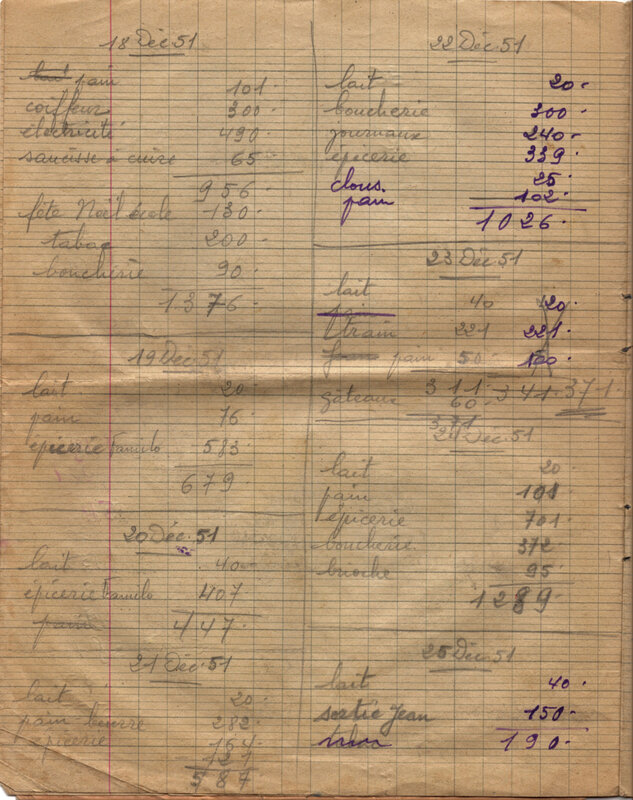 18 Déc 51
lait pain 101
coiffeur 300
électricité 490
saucisse à cuire 65
956
fête Noël école 130
tabac 200
boucherie 90
1376
19 Déc 51
lait 20
pain 76
épicerie Familo 583
679
20 Déc. 51
lait 40
épicerie Familo 407
pain
447
21 Déc. 51
lait 20
pain beurre 282
épicerie 164
121
587
22 Déc 51
lait 20
boucherie 300
journaux 240
épicerie 339
clous 25
pain 102
1026
23 Déc 51
lait 40 20
train 221 221
pain 50 100
311 341 371
gâteaux 60
371
Déc 51
lait 20
pain 101
épicerie 701
boucherie 372
brioche 95
1289
25 Déc 51
lait 40
sortie Jean 150
tabac 190